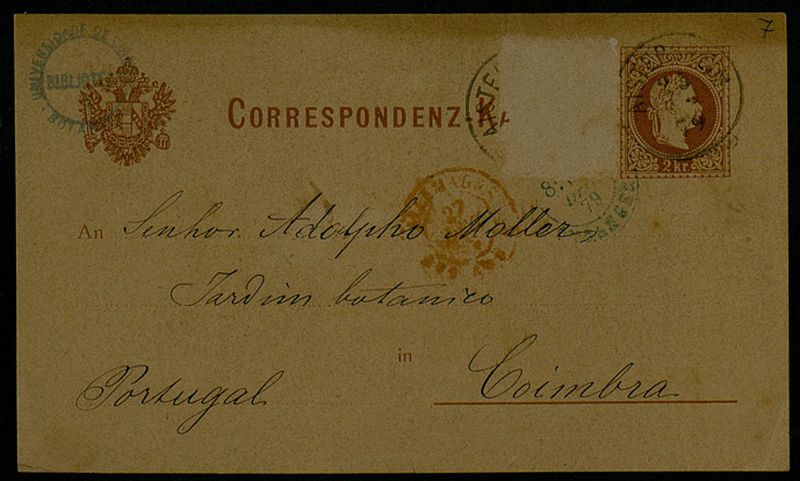 7
UNIVERSIDADE DE
BIBLIOTE
BOTA
CORRESPONDENZ-KA
2 kr.
27
79
An Senhor Adolpho Moller
Jardim botanico
in Coimbra
Portugal